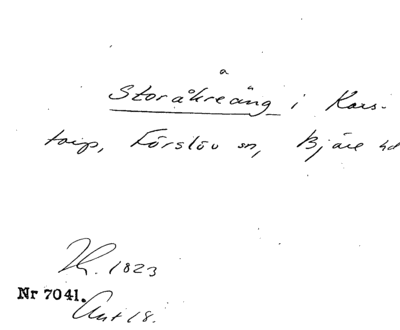 a
Storåkreäng i Kars-
torp, Förslöv sn, Bjäre hd
Th. 1823
Nr 7041.
Akt 18.